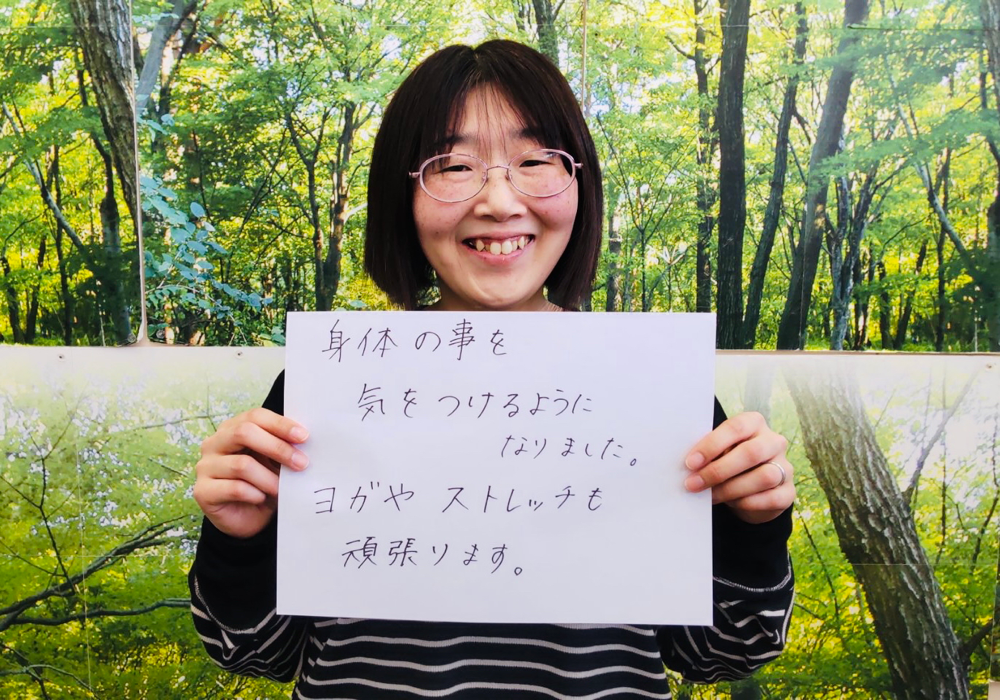 身体の事を
気をつけるように
なりました。
ヨガや ストレッチも
頑張ります。